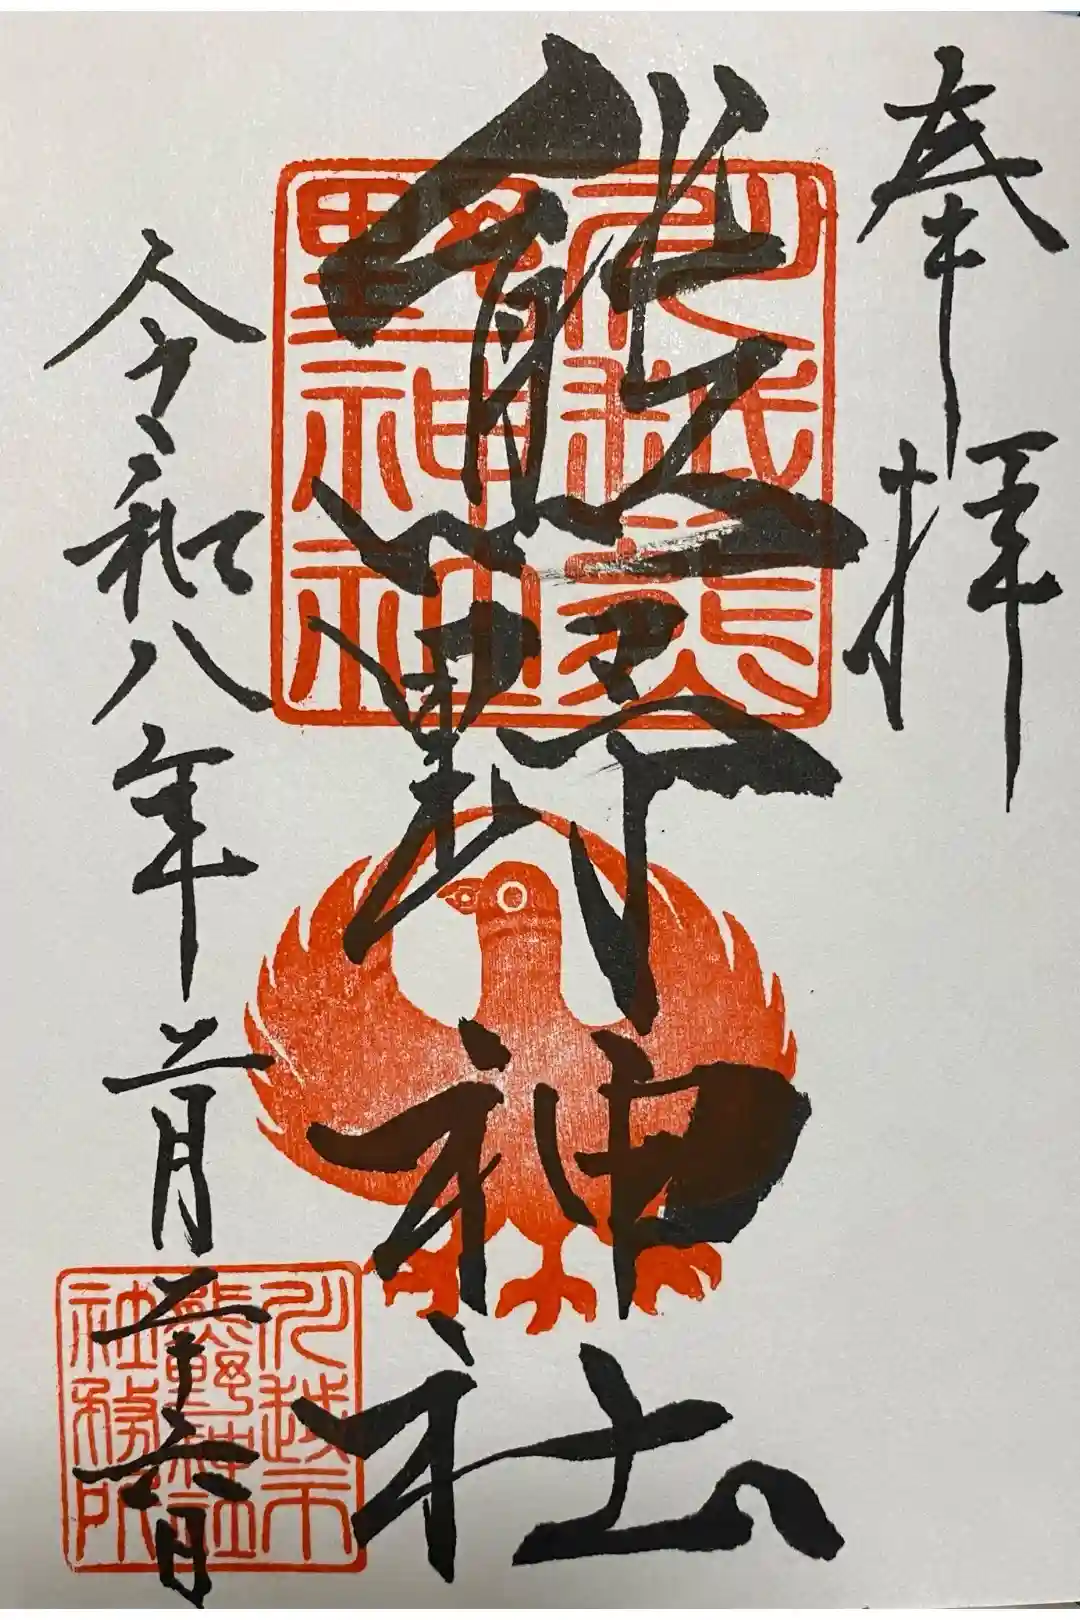 奉拝
熊野神社
川越熊
野神社
令和八年二月二十六日
川越市
熊野神社
社務所